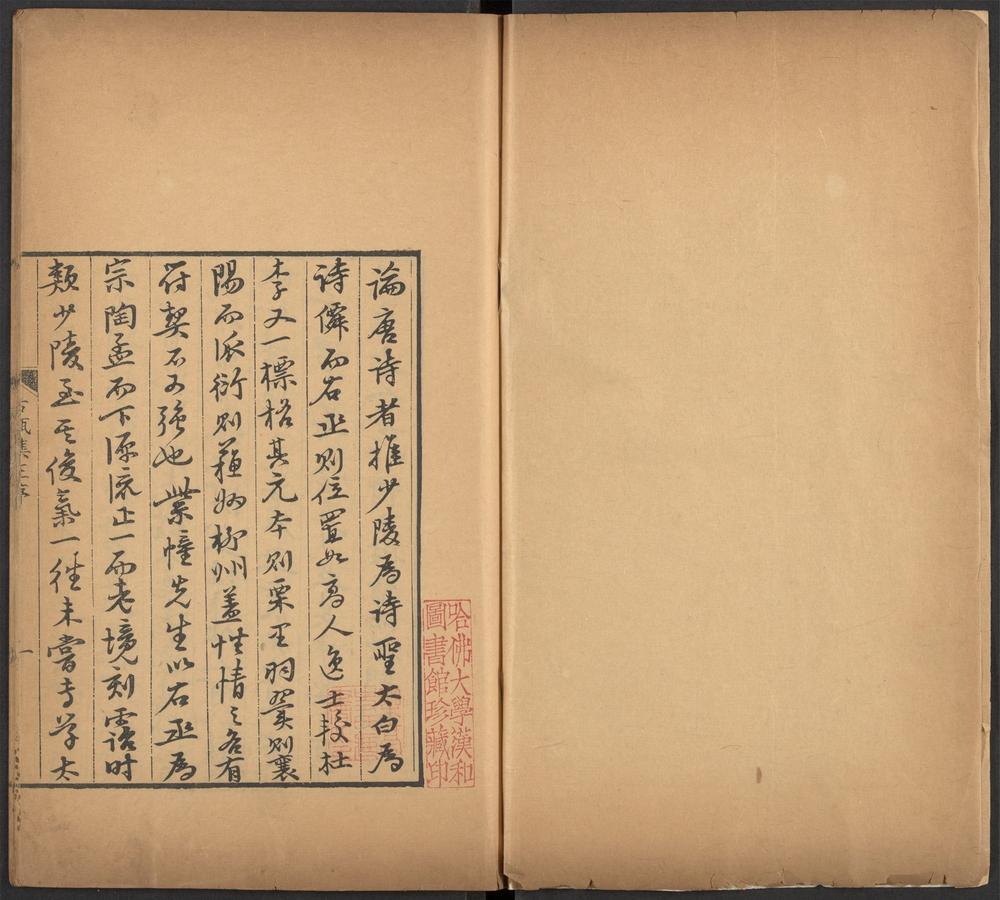 論唐詩者推少陵爲詩聖太白爲
詩僊而右丞則位置如高人逸士較杜
李又一標格其元本則栗里羽翼則襄
陽而派衍則蘇州柳州蓋性情之各有
符契不可强也紫幢先生以右丞爲
宗陶孟而下源流正一而老境刻露時
類少陵至其俊氣一往未嘗專學太
集
序
一
哈佛大學漢和
圖書館珍藏印